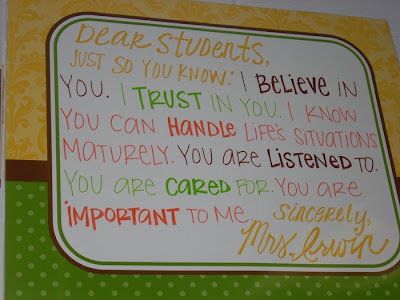 Dear Students,
Just so you know: I Believe in
you. I TRUST in you. I know
you can HANDLE Life's Situations
Maturely. You are LISTENED to.
You are CARED for. You are
IMPORTANT to me. Sincerely,
Mrs. Irwin